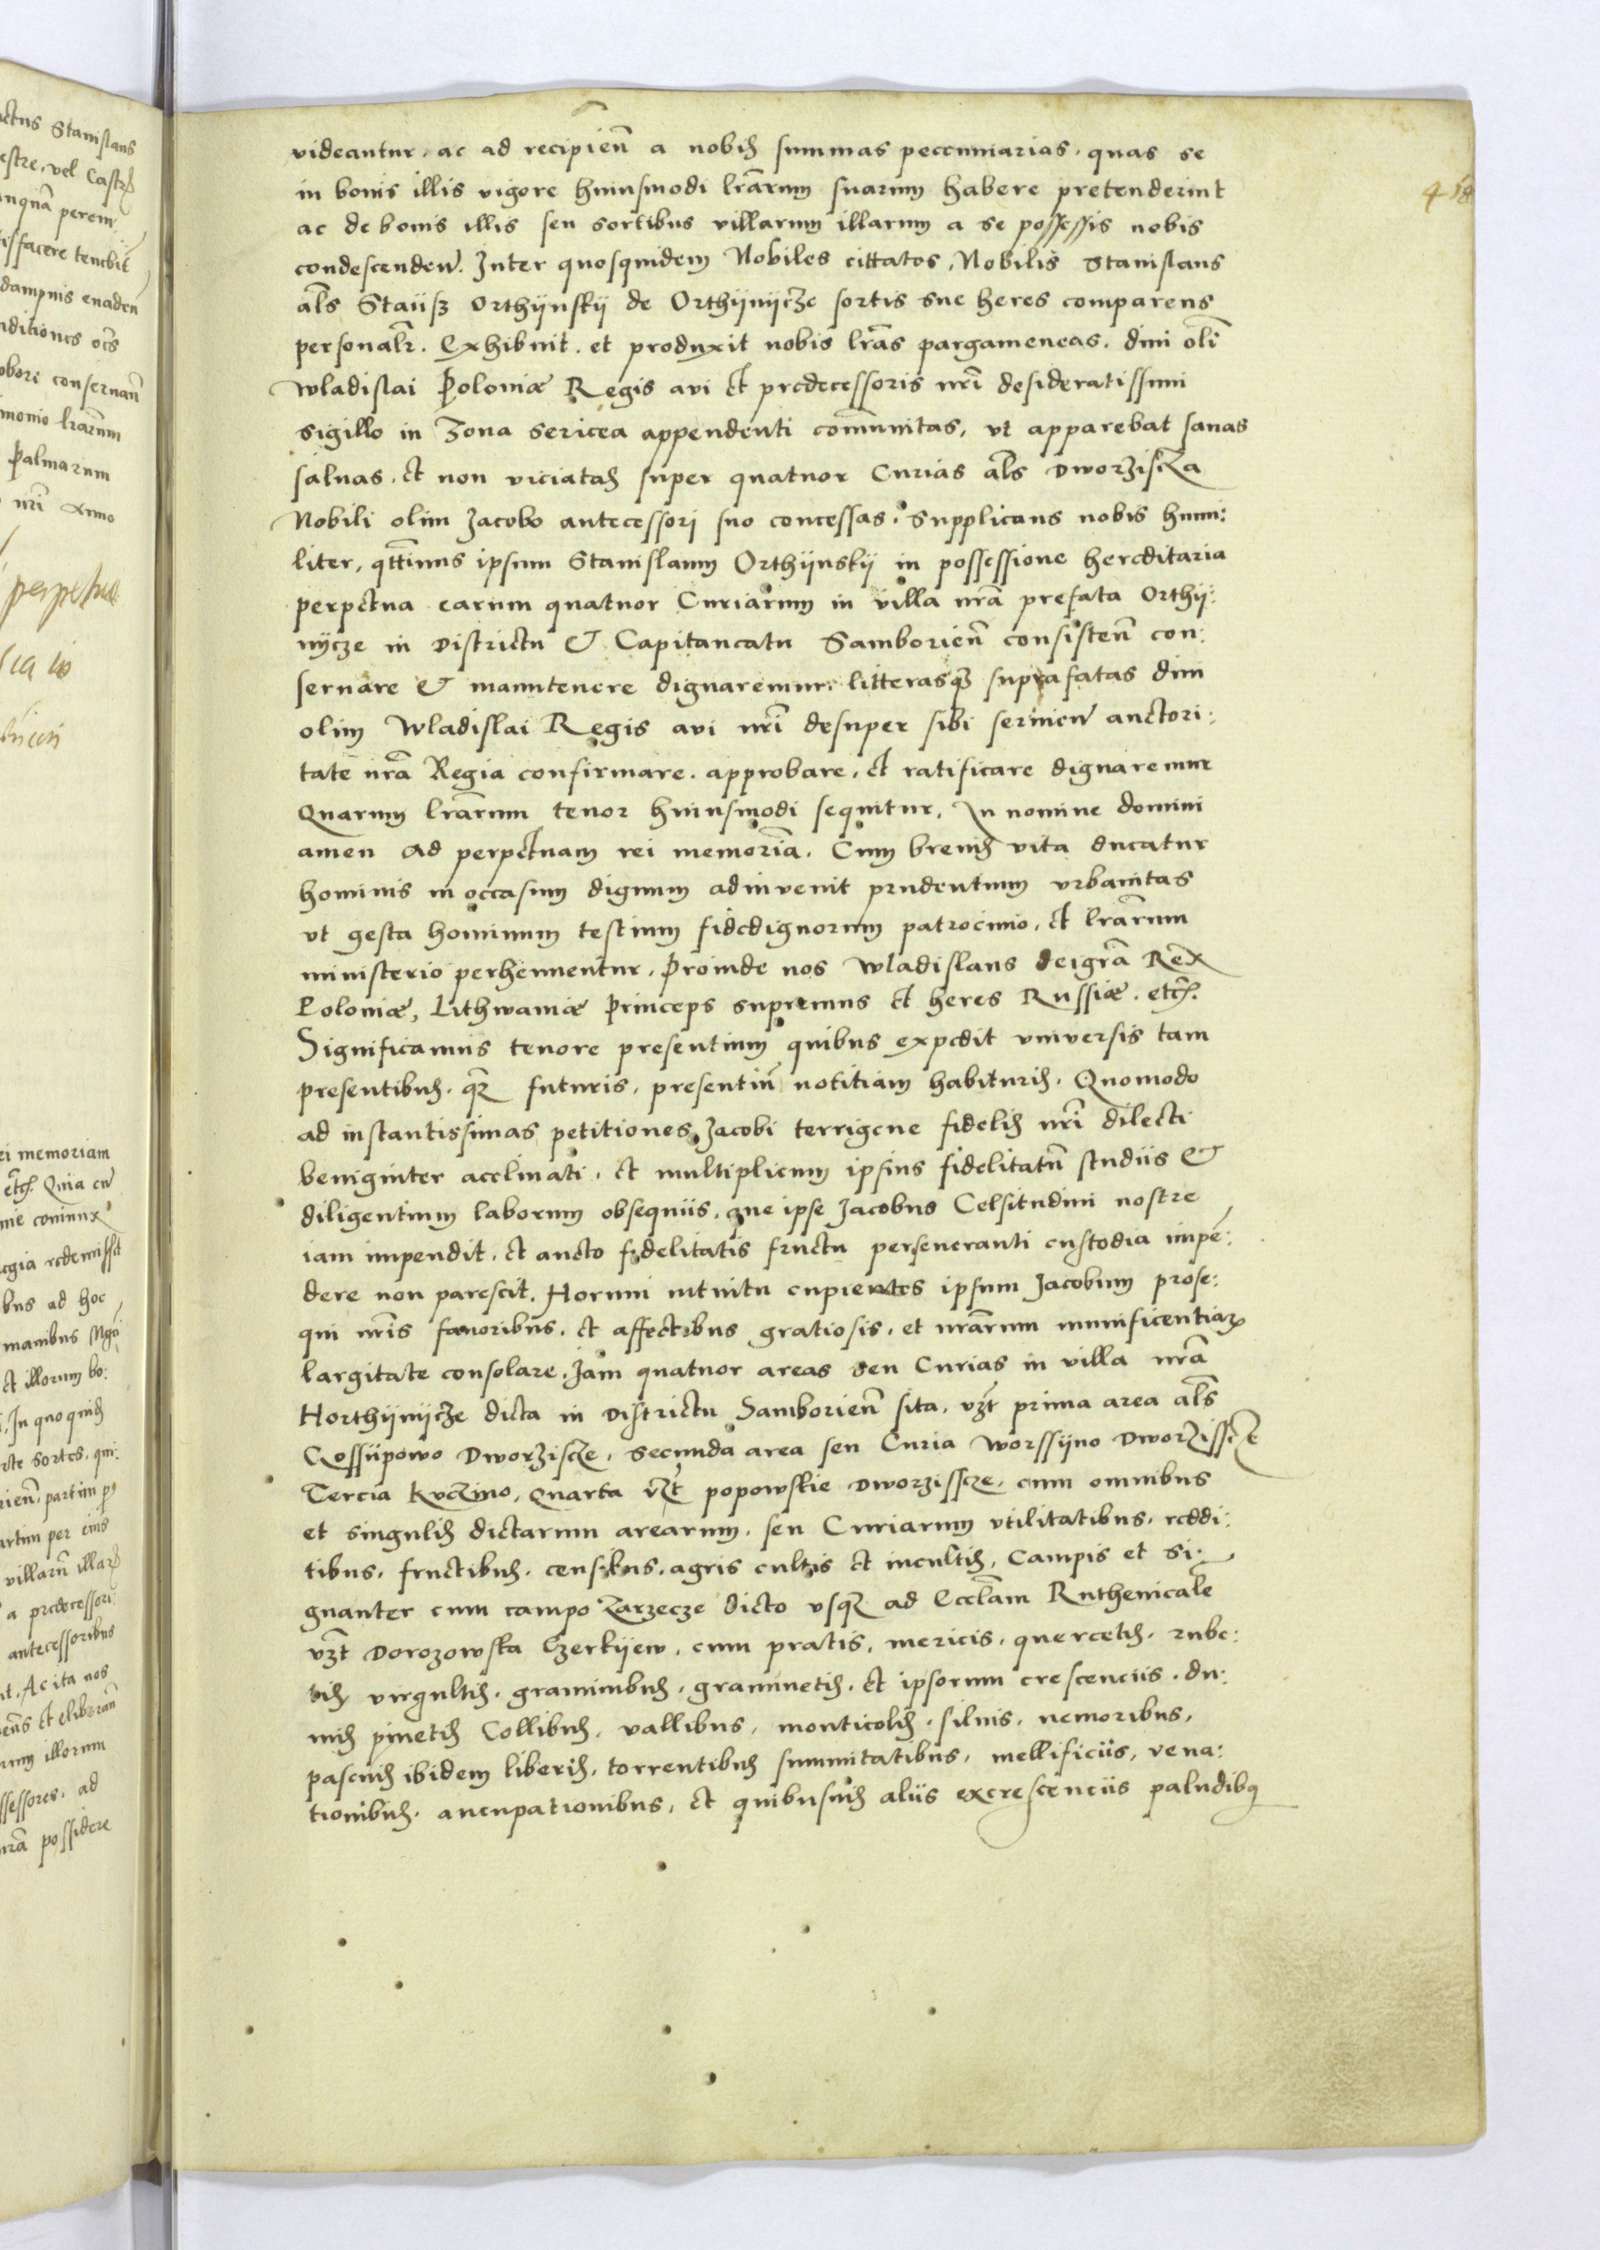 videantur, ac ad recipień a nobis summas peccuniarias, quas se
in bonis illis vigore huiusmodi lrarum suarum habere pretenderint
ac de bonis illis seu sortibus villarum illarum a se possessis nobis
condescenden. Inter quosquidem Nobiles cittatos, Nobilis Stanislaus
als Staüsz Orthÿnskÿ de Orthÿnÿcze sortis sue heres comparens
personalr. Exhibuit. et produxit nobis lras pargameneas, dini oli
Wladislai Poloniæ Regis avi et predecessoris nri desideratissimi
sigillo in Zona sericea appendenti communitas, ut apparebat sanas
saluas, et non viciatas super quatuor Curias als Dworziscza
Nobili olim Jacobo antecessori suo concessas. Supplicans nobis humi:
liter, qttinus ipsum Stanislaum Orthÿnskÿ in possessione hereditaria
perpetua earum quatuor Curiarum in villa nra prefata Orthÿ:
nÿcze in Districtu & Capitaneatu Samborień consisteń con:
seruare & manutenere dignaremur, litterasq3 suprafatas dini
olim Wladislai Regis avi nri desuper sibi seruien auctori:
tate nra Regia confirmare, approbare, et ratificare dignaremur
Quarum lrarum tenor huiusmodi sequitur. In nomine domini
amen Ad perpetuam rei memoria. Cum breuis vita ducatur
hominis in occasum dignum adinvenit prudentum urbanitas
ut gesta hominum testium fidedignorum patrocinio, et lrarum
ministerio perhennentur. Proinde nos Wladislaus deigra Rex
Poloniæ, Lithwaniæ Princeps supremus et heres Russiæ. etc.
Significamus tenore presentium quibus expedit universis tam
presentibus, q3 futuris, presentiu notitiam habituris, Quomodo
ad instantissimas petitiones Jacobi terrigene fidelis nri dilecti
benigniter acclinati, et multiplicum ipsius fidelitatu studiis &
diligentium laborum obsequiis, que ipse Jacobus Celsitudini nostre
iam impendit, et aucto fidelitatis fructu perseueranti custodia impe:
dere non parescit. Horum intuitu cupientes ipsum Jacobum prose:
qui nris fauoribus, et affectibus gratiosis, et nrarum munificentiar
largitate consolare. Jam quatuor areas seu Curias in villa nra
Horthÿnÿcze dicta in Districtu Samborień sita, vzt prima area als
Cossüpowo Dworziscze, Secunda area seu Curia Worssÿno Dworzissze
Tercia Kuczino, Quarta vzt popowskie Dworzissze, cum omnibus
et singulis dictarum arearum, seu Curiarum utilitatibus, reddi:
tibus, fructibus, censibus, agris cultis et incultis, Campis et Si:
gnanter cum campo Zarzecze dicto usq3 ad Ecclam Ruthenicale
vzt Dorozowska Czerkÿew, cum pratis, mericis, quercetis, rube:
tis virgultis, graminibus, graminetis, et ipsorum crescenciis, du:
mis pinetis Collibus, vallibus, monticolis, siluis, nemoribus,
pascuis ibidem liberis, torrentibus summitatibus, mellificiis, vena:
tionibus, aucupationibus, et quibusuis aliis excrescenciis paludibq